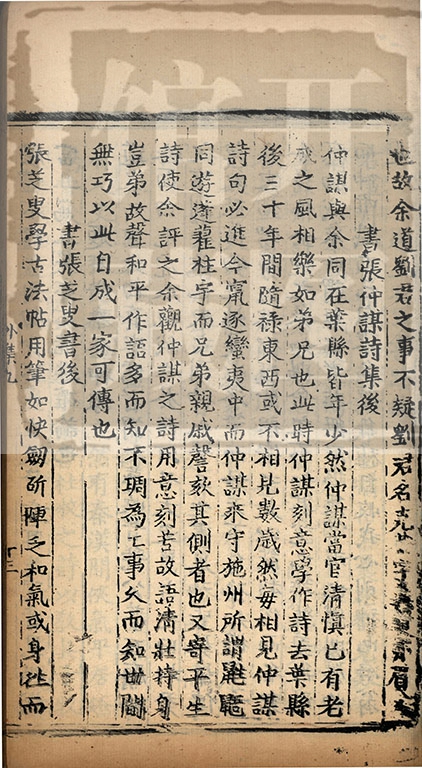 也故余道劉君之事不疑劉君名
書張仲謀詩集後
仲謀與余同在葉縣皆年少然仲謀當官清慎已有老
成之風相樂如弟兄也此時仲謀刻意學作詩去葉縣
後三十年間隨祿東西或不相見數歲然每相見仲謀
詩句必進今竄逐蠻夷中而仲謀來守施州所謂鼪鼯
同遊蓬藋柱宇而兄弟親戚謦欬其側者也又寄平生
詩使余評之余觀仲謀之詩用意刻苦故語清壯持身
豈弟故聲和平作語多而知不琱為工事久而知世間
無巧以此自成一家可傳也
書張芝叟書後
張芝叟學古法帖用筆如快劒斫陣乏和氣或身往而
外集九
十三